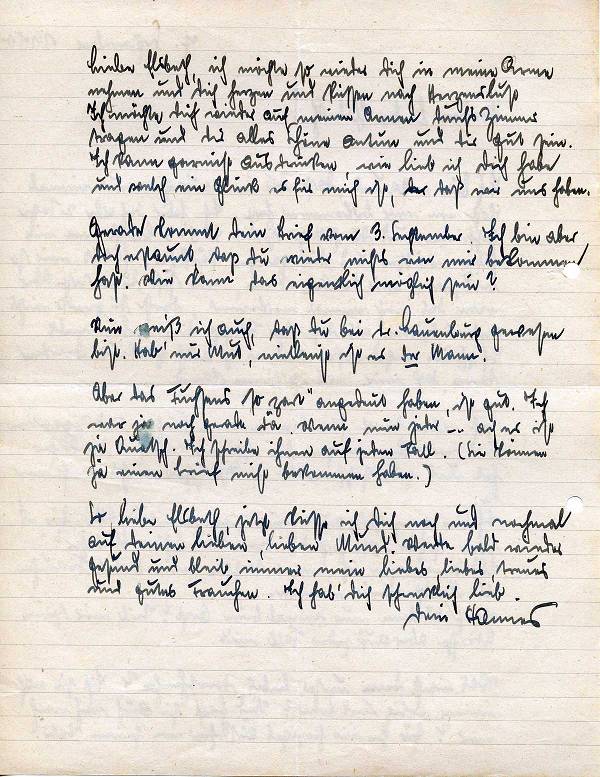 Liebe Elsbeth, ich möchte so wieder dich in meine Arme
nehmen und dich herzen und küssen nach Herzenslust
Ich möchte dich wieder auf meinen Armen durchs Zimmer
tragen und dir alles Schöne antun und dir gut sein.
Ich kann garnicht ausdrücken, wie lieb ich dich habe
und welch ein Glück es für mich ist, daß wir uns haben.
Gerade kommt dein Brief vom 3. September. Ich bin aber
doch erstaunt, daß du wieder nichts von mir bekommen
hast. Wie kann das eigentlich möglich sein?
Nun weiß ich auch, daß du bei Dr. Lauenburg gewesen
bist. Hab' nur Mut, vielleicht ist es der Mann.
Aber das so zart" angedeut haben, ist gut. Ich
war ja noch gerade da. Wenn nun jeder ... ach es ist
ja Quatsch. Ich schreibe ihnen auf jeden Fall. (Sie können
ja einen Brief nicht bekommen haben.)
So, liebe Elsbeth, jetzt küsse ich dich noch und nochmal
auf deinen lieben, lieben Mund, werde bald wieder
gesund und bleib immer mein liebes, liebes, treues
und gutes Frauchen. Ich hab' dich schrecklich lieb.
Dein Hannes